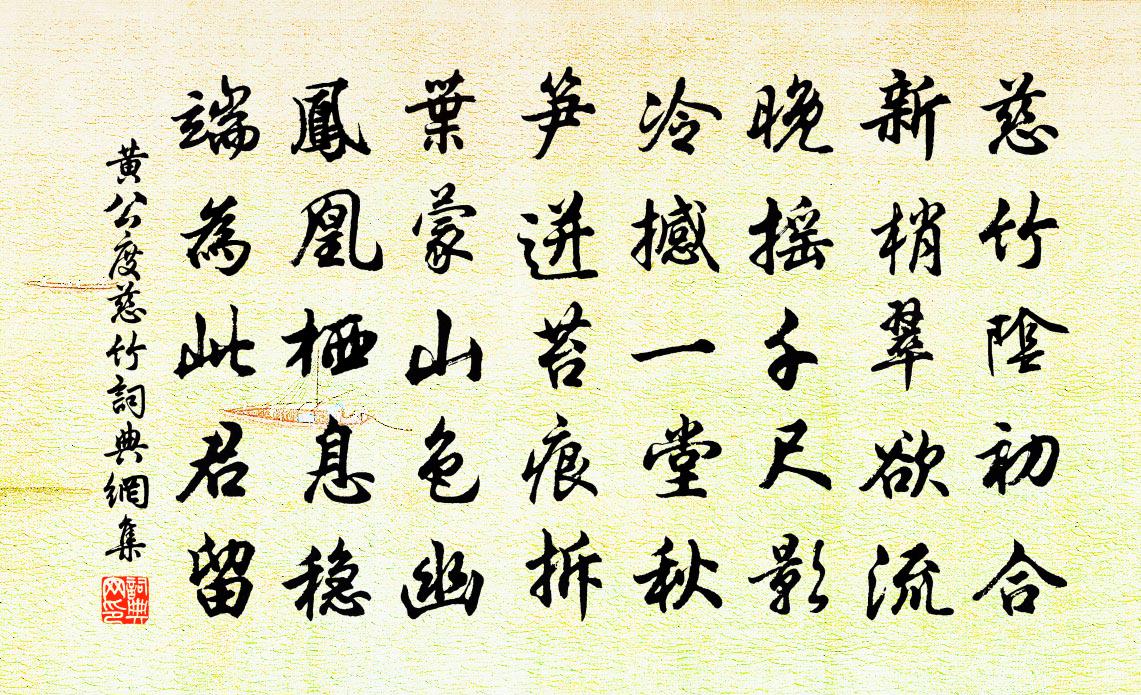 慈竹陰初合
新梢翠欲流
晚搖千尺影
冷撼一堂秋
笋迸苔痕拆
葉蒙山色幽
鳳凰栖息穩
端為此君留
黃公度慈竹詞典網集
詞典网印